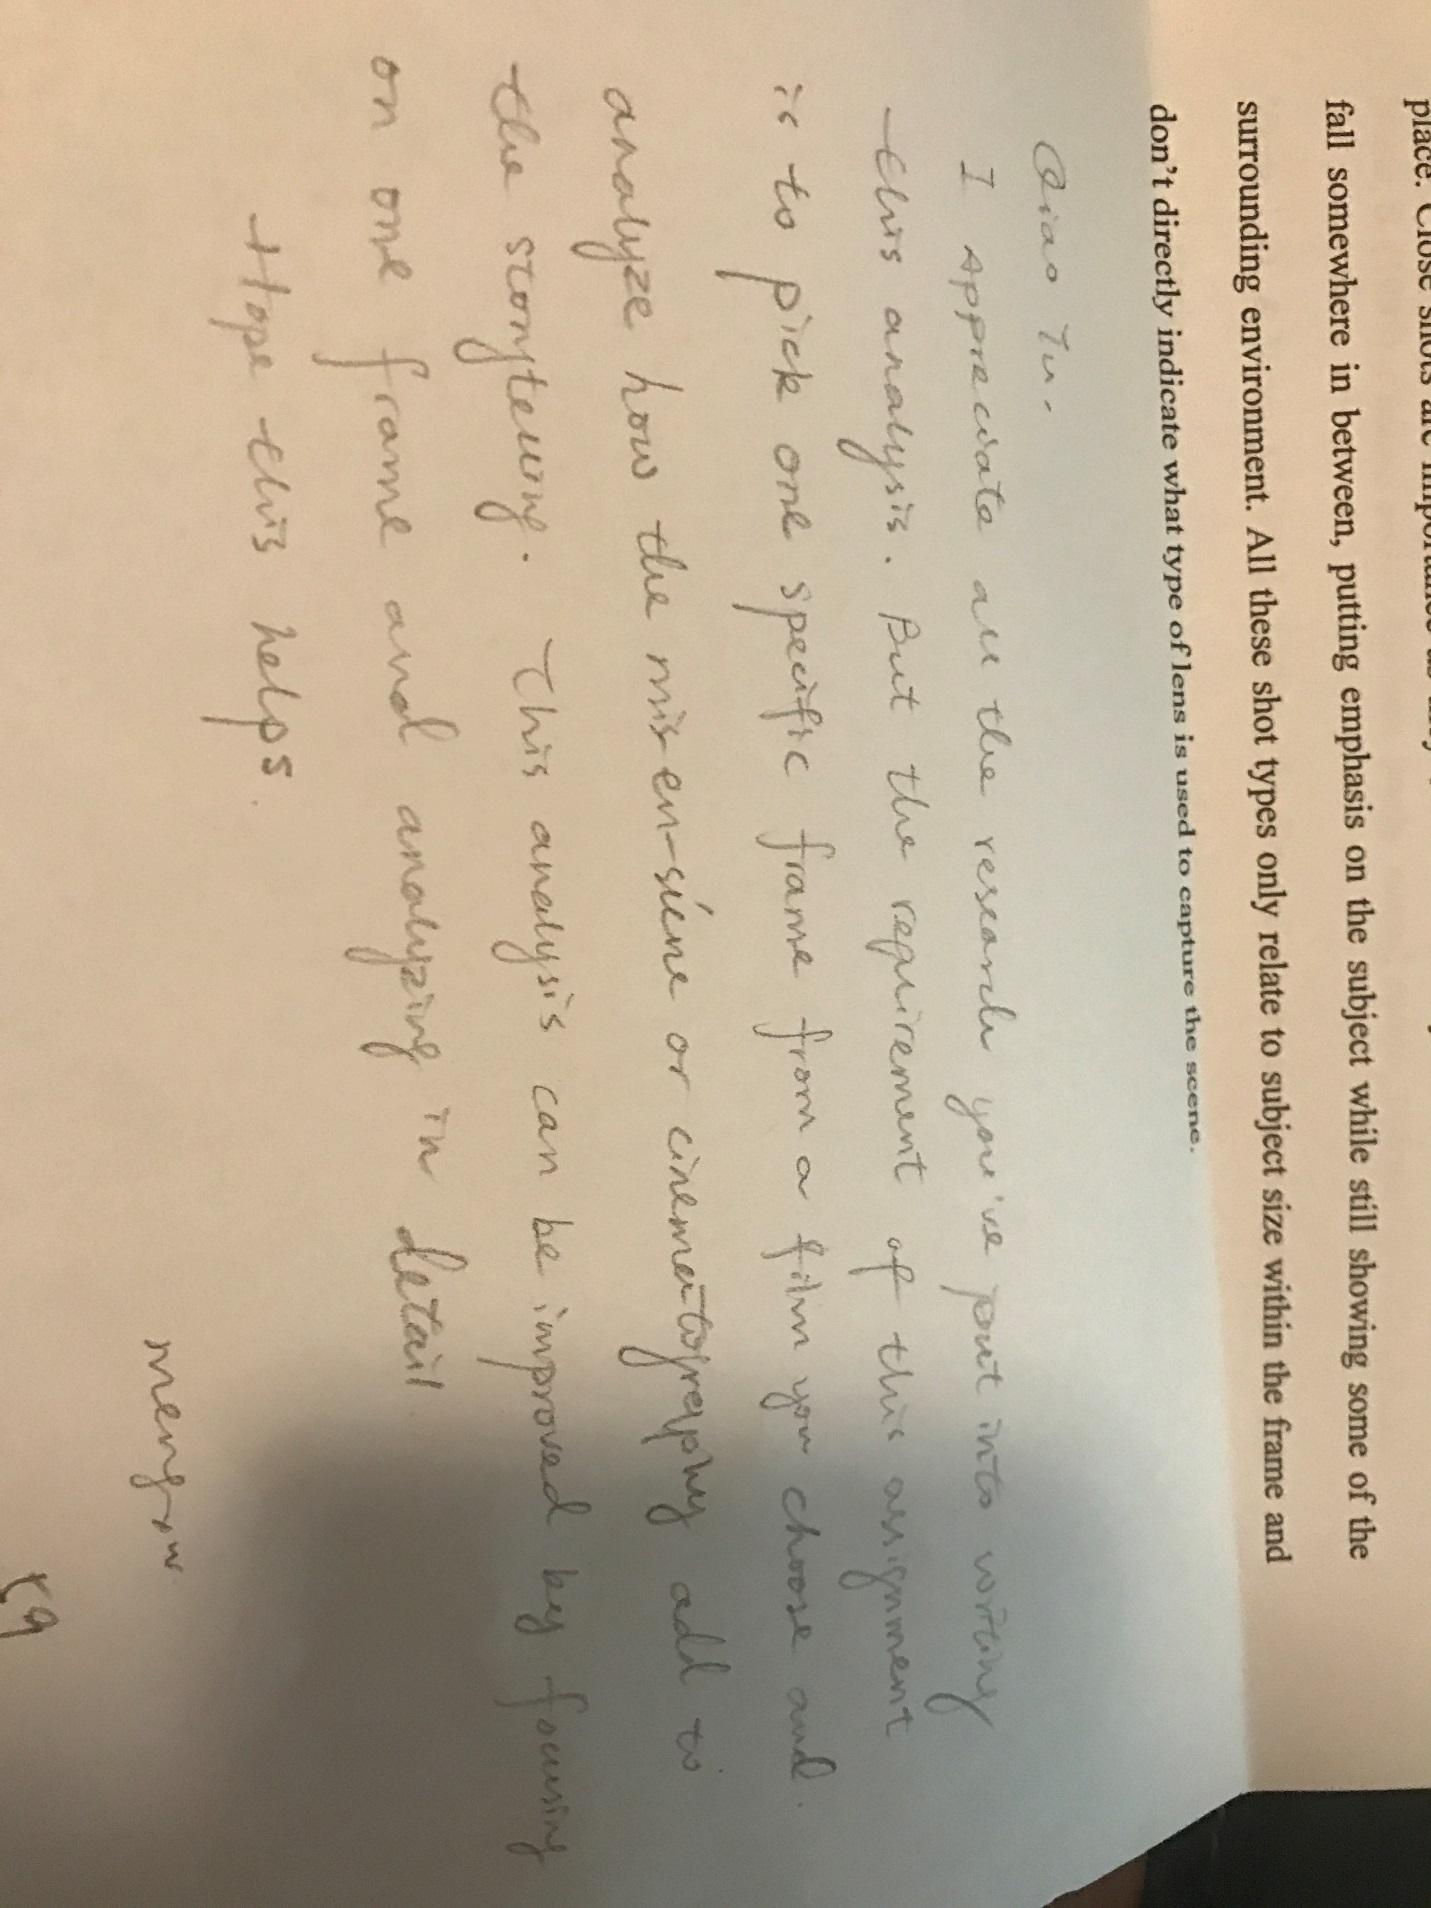 place. Close shots are
fall somewhere in between, putting emphasis on the subject while still showing some of the
surrounding environment. All these shot types only relate to subject size within the frame and
don't directly indicate what type of lens is used to capture the scene.
I appreciate all the research you've put into writing
this analysis. But the requirement of this assignment
is to pick one specific frame from a film you choose and
analyze how the mis-en-séne or cinematography add to
the storytelling. This analysis can be improved by focusing
on one frame and analyzing in detail
Hope this helps.